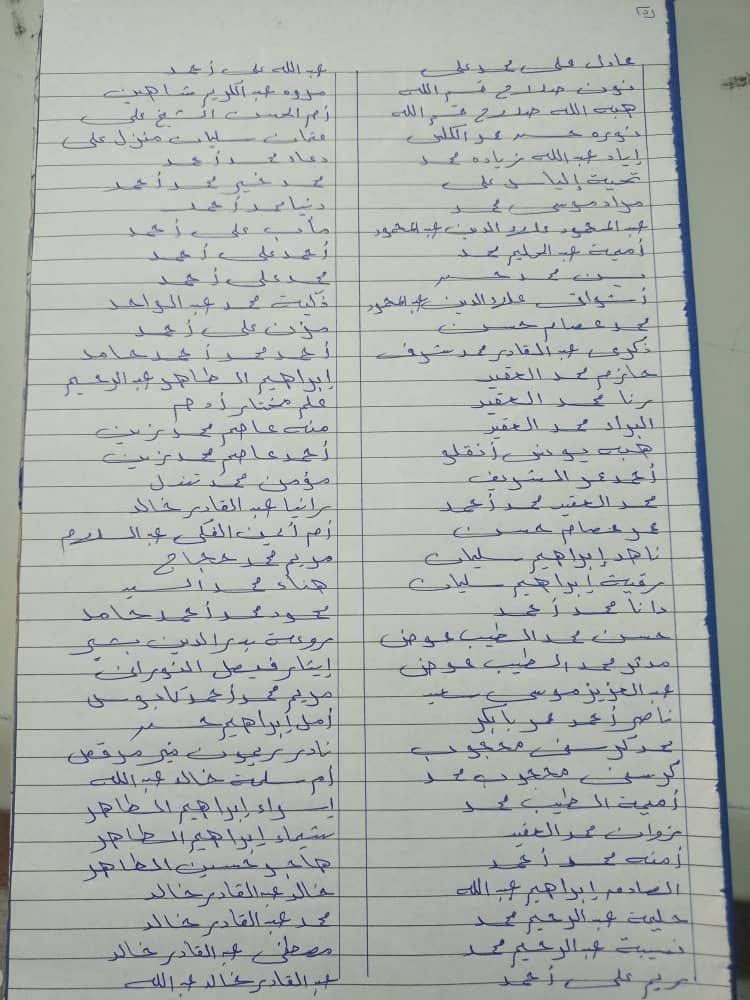 (٥)
عادل علي محمد علي
نون صلاح قسم الله
هبه الله صلاح قسم الله
نويره حسن
إياد عبد الله زياده محمد
تحية إلياس علي
مواد موسى محمد
عبد المحمود علاء الدين عبد المحمود
أمية عبد الحليم محمد
محمد
أشواق علاء الدين عبد المحمود
محمد عصام حسن
ذكرى عبد القادر محمد شريف
حازم محمد الفقير
رنا محمد الفقير
محمد الفقير
هبه يونس أنقلو
أحمد عمر الشريف
محمد الفقير محمد أحمد
عمر عصام حسن
ناهد إبراهيم سليمان
رقية إبراهيم سليمان
دانا محمد أحمد
حسن محمد الطيب عوض
مدثر محمد الطيب عوض
عبد العزيز موسى سعيد
ناصر أحمد عمر بابكر
محمد كرسني محجوب
كرسني محجوب محمد
أمية الطيب محمد
نزوان محمد الفقير
أمنه محمد أحمد
الصادق إبراهيم عبد الله
حليمة عبد الرحيم محمد
نسيبة عبد الرحيم محمد
ريم علي أحمد
عبد الله علي أحمد
مروه عبد الكريم شاهين
أم الحسن الشيخ علي
عثمان سليمان منزل علي
دعاء محمد أحمد
محمد خير محمد أحمد
دنيا محمد أحمد
مآب علي أحمد
أحمد علي أحمد
محمد علي أحمد
زكية محمد عبد الواحد
مؤمن علي أحمد
أحمد محمد أحمد حامد
إبراهيم الطاهر عبد الرحيم
علم مختار آدم
منه عاصم محمد زين
أحمد عاصم محمد زين
مؤمن محمد
رانيا عبد القادر خالد
أم أيمن الفكي عبد السلام
مريم محمد حجاج
هناء محمد السيد
محمود محمد أحمد حامد
روعة بدر الدين بشير
إيثار فيصل النوراني
مريم محمد أحمد
أمل إبراهيم
نادر ريمون منير مرقص
أم سلمة خالد عبد الله
إسراء إبراهيم الطاهر
شيماء إبراهيم الطاهر
هاجر حسين الطاهر
خالد عبد القادر خالد
محمد عبد القادر خالد
مصطفى عبد القادر خالد
عبد القادر خالد عبد الله